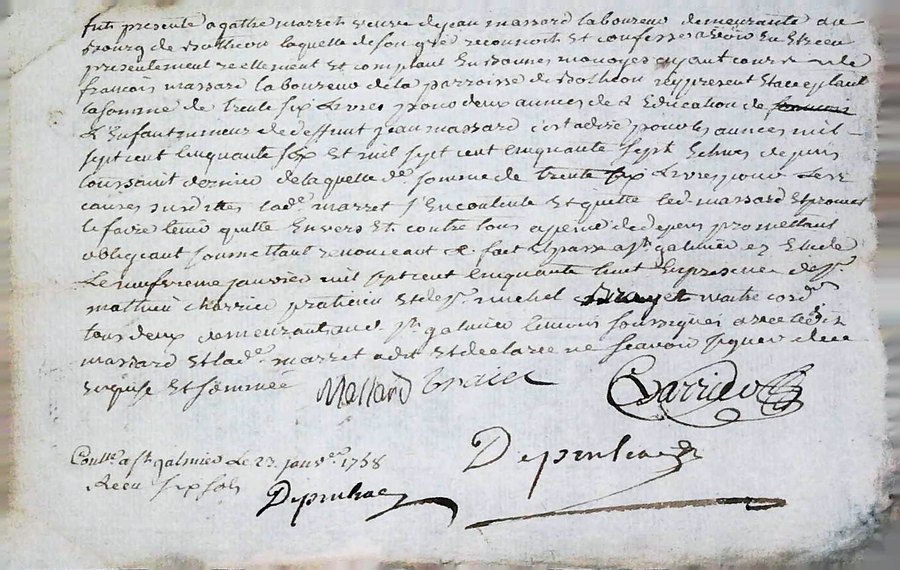 fut presente agathe marret veuve de jean massard laboureur demeurante au
Bourg de Bothéon laquelle de son gré reconnoit et confesse avoir eu et receu
presentement reellement et comptant en bonnes monoyes ayant cours de
françois massard laboureur de la parroisse de Bothéon icy present et acceptant
la somme de trente six Livres pour deux années de l'Education de francois
L'Enfant mineur de deffunt jean massard c'est adire pour les années mil
sept cent cinquante six et mil sept cent cinquante sept Echues depuis
toussaint dernier de laquelle de. somme de trente six Livres pour les
causes susdittes lade. marret s'en contente et quitte led. massard et promet
le faire tenir quitte Envers et contre tous a peine de depens promettant
obligeant soumettant renonceant &. fait et passé a st. galmier ez Etude
Le neufvieme janvier mil sept cent cinquante huit En presence de sr.
mathieu charrier praticien et de sr. michel maitre cord
tous deux demeurant aud. st. galmier temoins soussignés avec led.
massard et lade. marret a dit et declaré ne scavoir signer de ce
Enquise et sommée
Massard Charrier
Depinhac
Contlle. a st. galmier Le 23. janver. 1758
Receu six sols
Depinhac